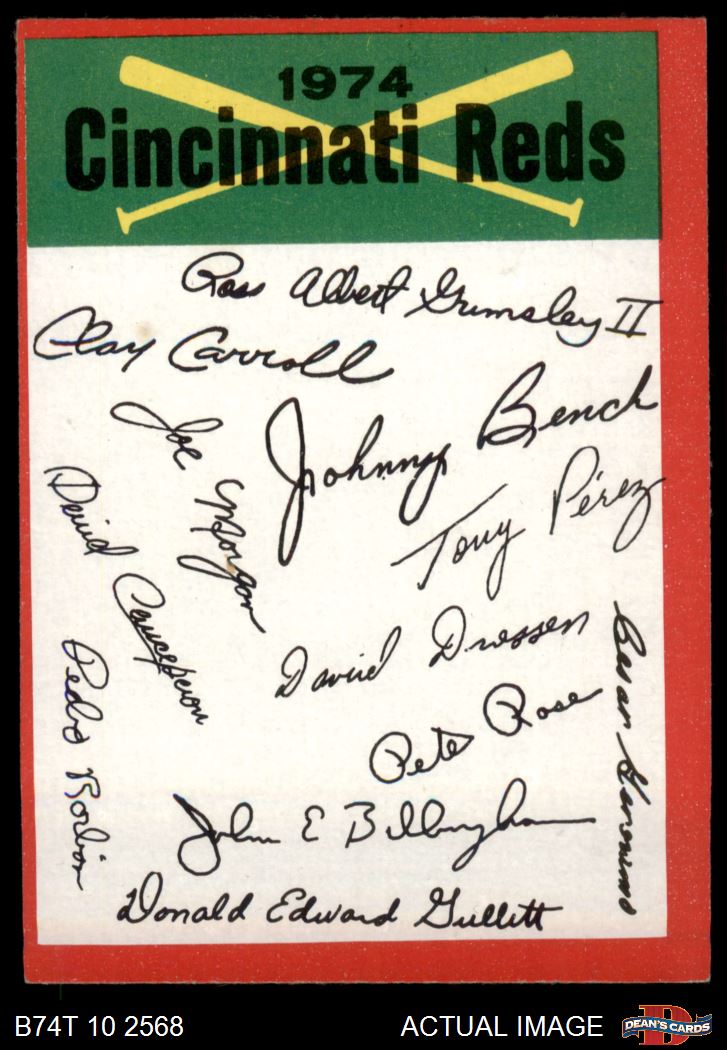 1974
Cincinnati Reds
Ross Albert Grimsley II
Clay Carroll
Johnny Bench
Joe Morgan
Tony Pérez
David Concepcion
David Driessen
Pedro Borbon
Cesar Geronimo
Pete Rose
John E Billingham
Donald Edward Gullett
B74T 10 2568
ACTUAL IMAGE
D
DEAN'S CARDS